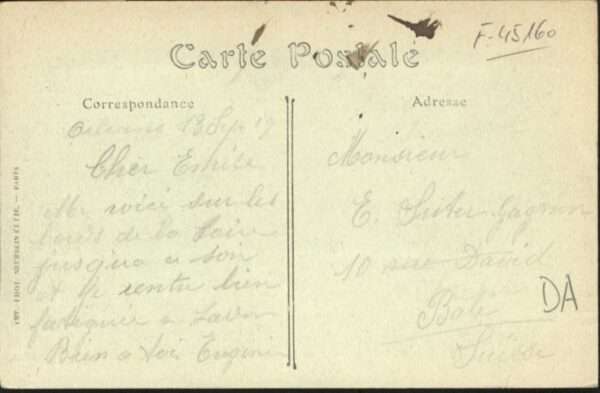 F-45160
Carte Postale
Correspondance
Adresse
Orleans 13 Sep 19
Cher Emile
Me voici sur les
bords de la Loire
jusqu'a ce soir
et je rentre bien
fatiguée a
Bien a toi Eugénie
Monsieur
E. Suter Gagnon
10 rue David
Bâle
Suisse
DA
IMP. PHOT. NEURDEIN ET CIE. — PARIS